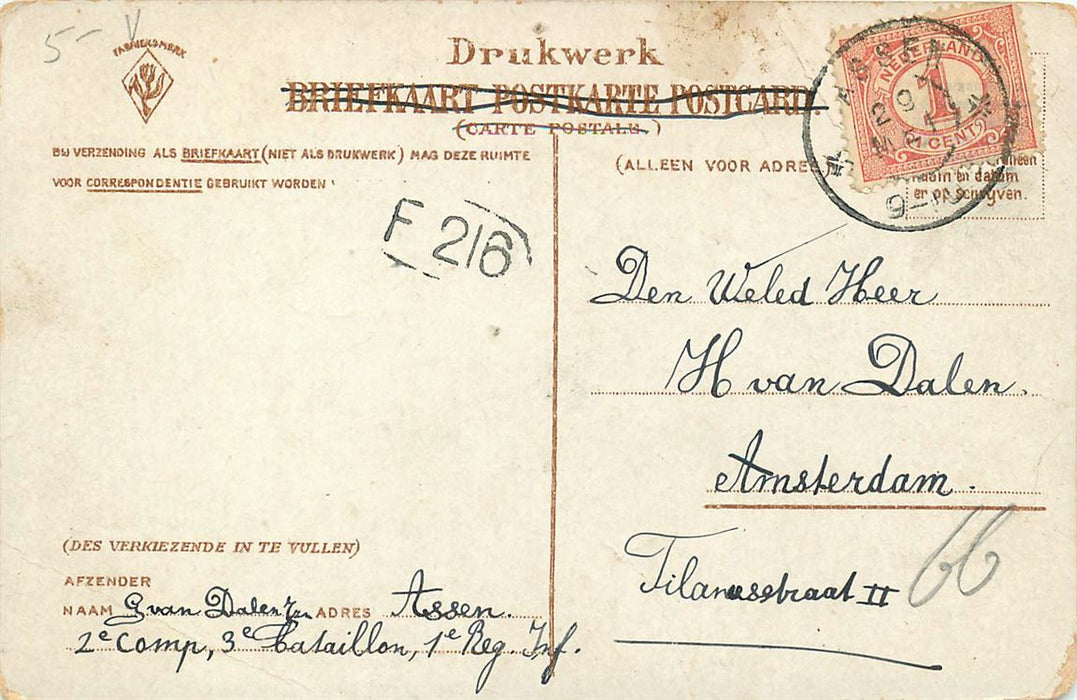 5- V
FABRIEKSMERK
Drukwerk
BRIEFKAART POSTKARTE POSTCARD.
(CARTE POSTALE.)
BIJ VERZENDING ALS BRIEFKAART (NIET ALS DRUKWERK) MAG DEZE RUIMTE
VOOR CORRESPONDENTIE GEBRUIKT WORDEN
(ALLEEN VOOR ADRES
ASSEN
NEDERLAND
1
CENT
alleen
naam en datum
er op schrijven.
F 216
Den Weled Heer
H van Dalen.
Amsterdam.
66
(DES VERKIEZENDE IN TE VULLEN)
AFZENDER
NAAM G van Dalen Zn ADRES Assen.
2e Comp, 3e Bataillon, 1e Reg. Inf.